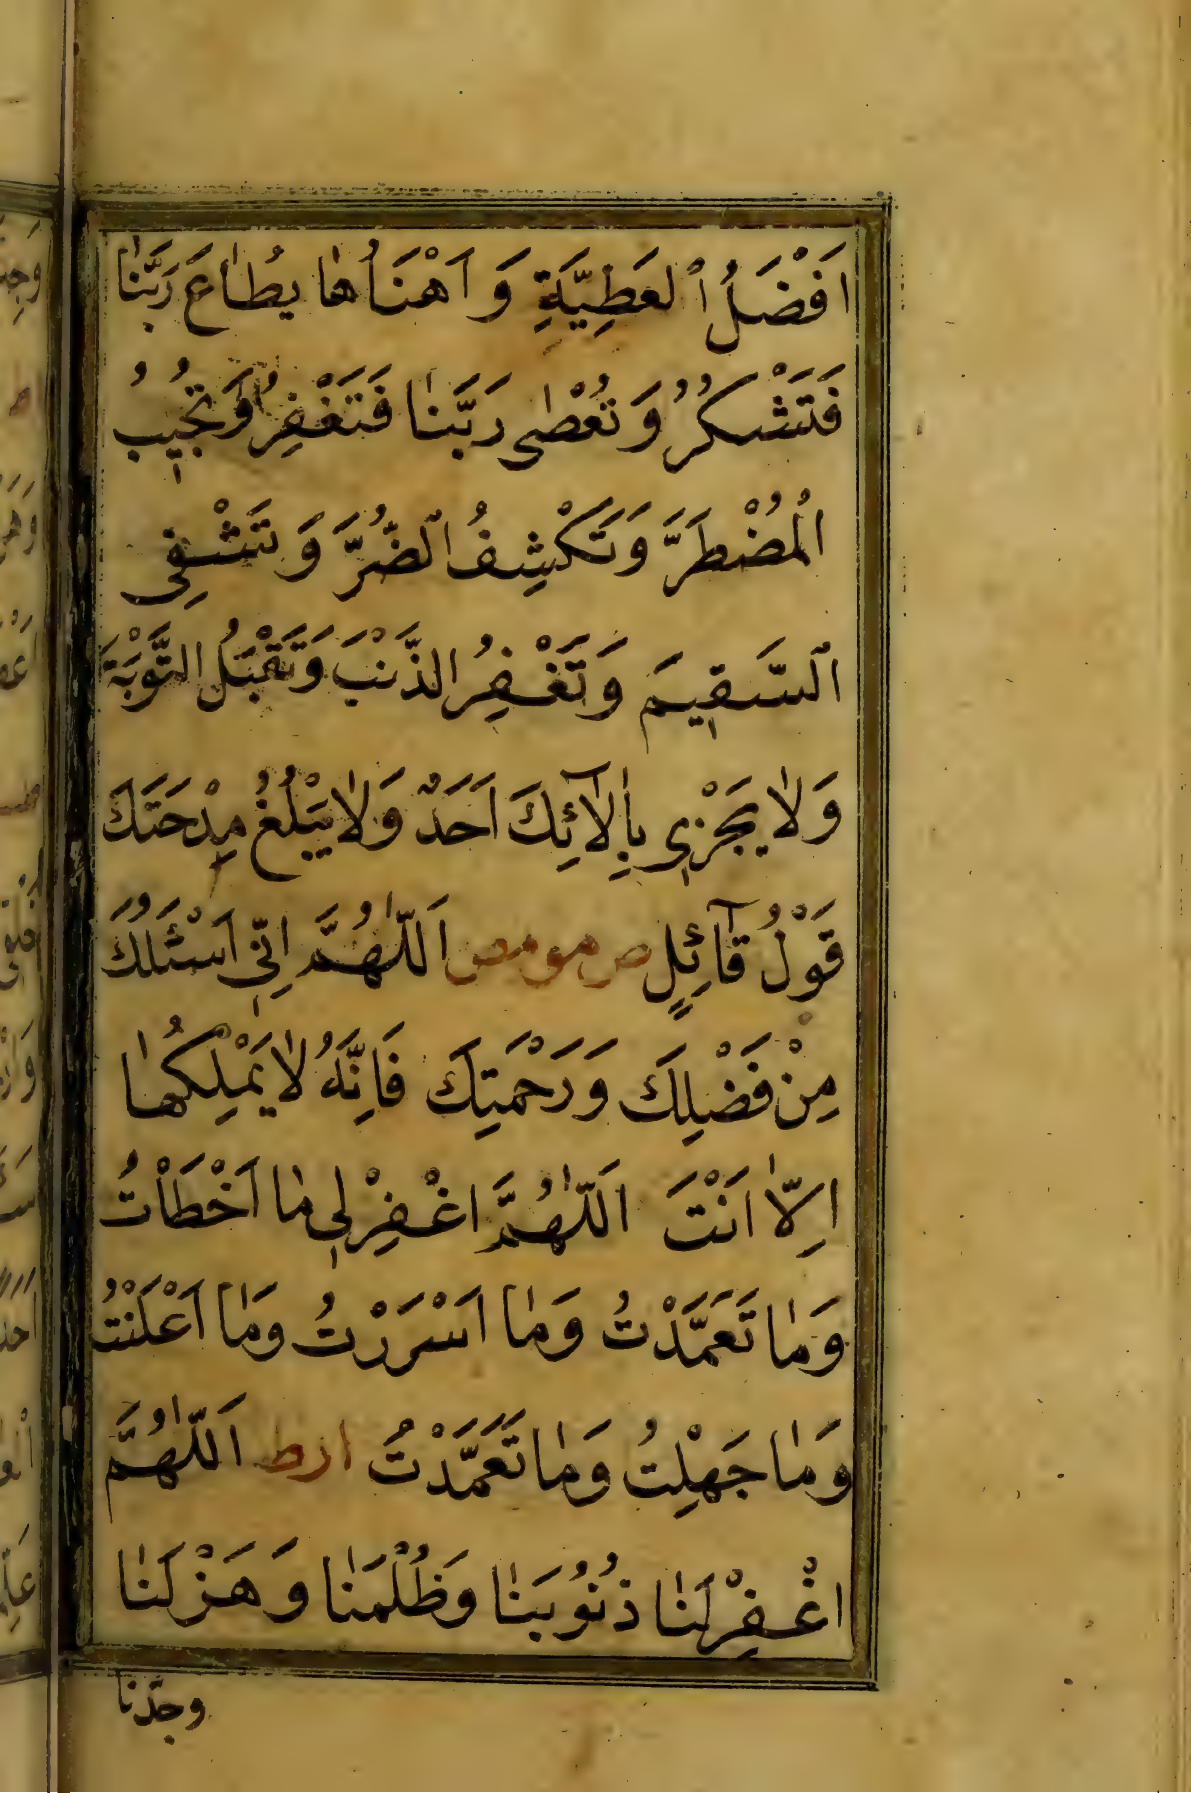 اَفْضَلُ الْعَطِيَّةِ وَ اَهْنَاُهَا يُطَاعَ رَبَّنَا
فَتَشْكُرُ وَ تُعْصٰى رَبَّنَا فَتَغْفِرُ وَتُجِيبُ
الْمُضْطَرَّ وَ تَكْشِفُ الضُّرَّ وَ تَشْفِى
السَّقِيمَ وَ تَغْفِرُ الذَّنْبَ وَ تَقْبَلُ التَّوْبَةَ
وَلَا يَجْزِى بِاٰلَآئِكَ اَحَدٌ وَلَا يَبْلُغُ مِدْحَتَكَ
قَوْلُ قَآئِلٍ ص مو مص اَللّٰهُمَّ اِنِّى اَسْئَلُكَ
مِنْ فَضْلِكَ وَ رَحْمَتِكَ فَاِنَّهُ لَا يَمْلِكُهَا
اِلَّا اَنْتَ اَللّٰهُمَّ اغْفِرْ لِى مَا اَخْطَأْتُ
وَمَا تَعَمَّدْتُ وَمَا اَسْرَرْتُ وَمَا اَعْلَنْتُ
وَمَا جَهِلْتُ وَمَا تَعَمَّدْتُ ا ر ط اَللّٰهُمَّ
اغْفِرْ لَنَا ذُنُوبَنَا وَ ظُلْمَنَا وَ هَزْلَنَا
وجدنا